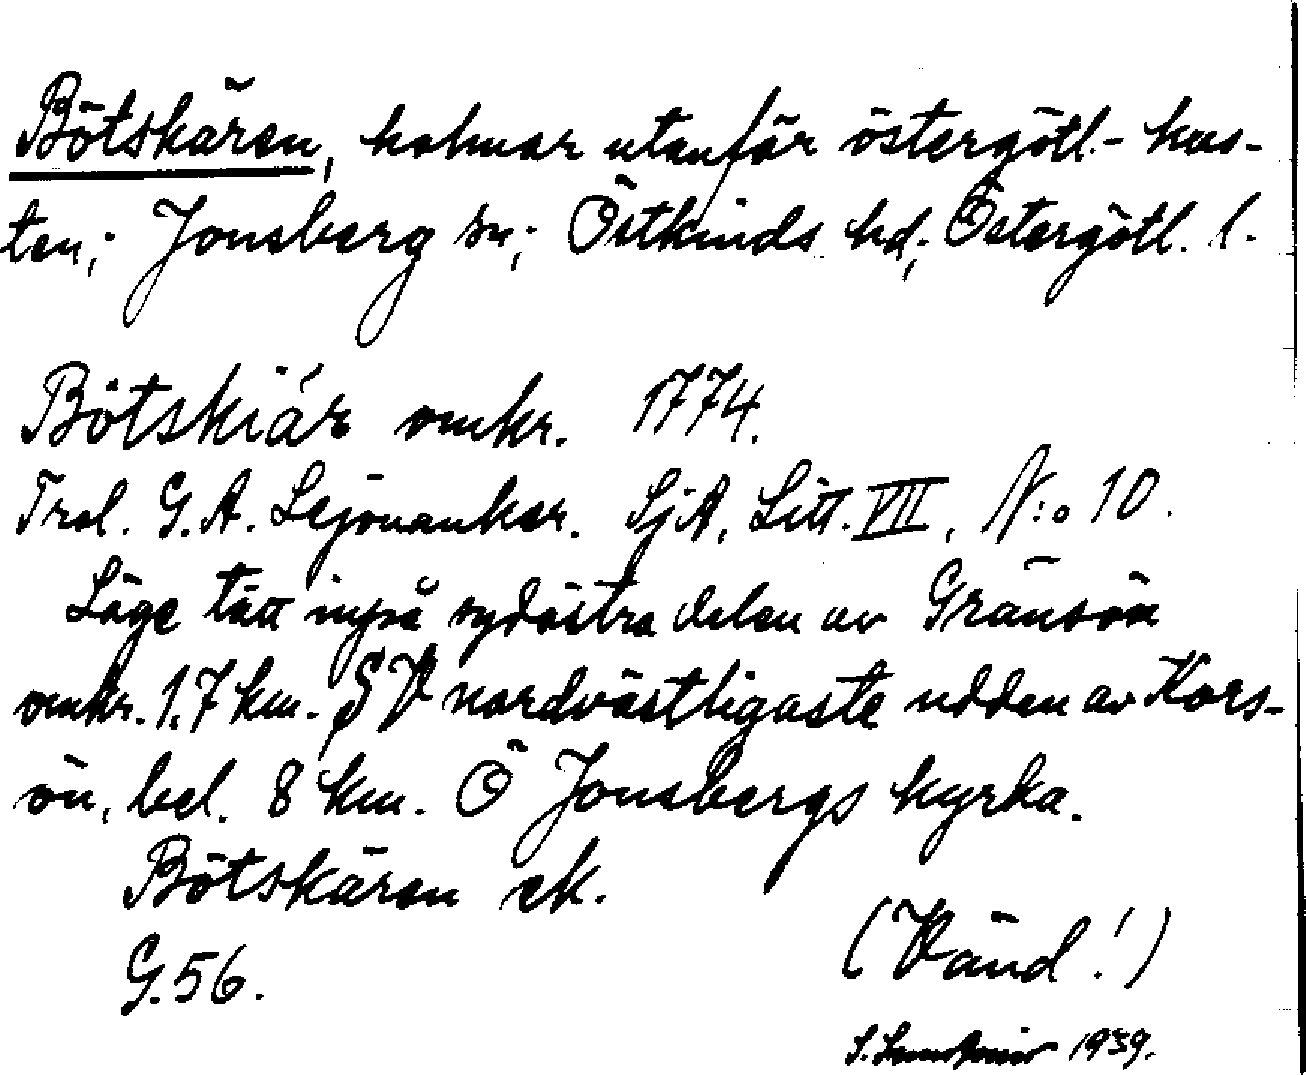 Bötskären, holmar utanför östergötl.- kus-
ten; Jonsberg sn; Östkinds hd; Östergötl. l.
Bötskiär omkr. 1774.
Trol. G. A. Lejonanker. SjA, Litt. VII, N:o 10.
Läge tätt inpå sydöstra delen av Gränsön
omkr. 1,7 km. SV nordvästligaste udden av Kors-
ön, bel. 8 km. Ö Jonsbergs kyrka.
Bötskären ek.
G.56.
(Vänd!)
S. 1939.